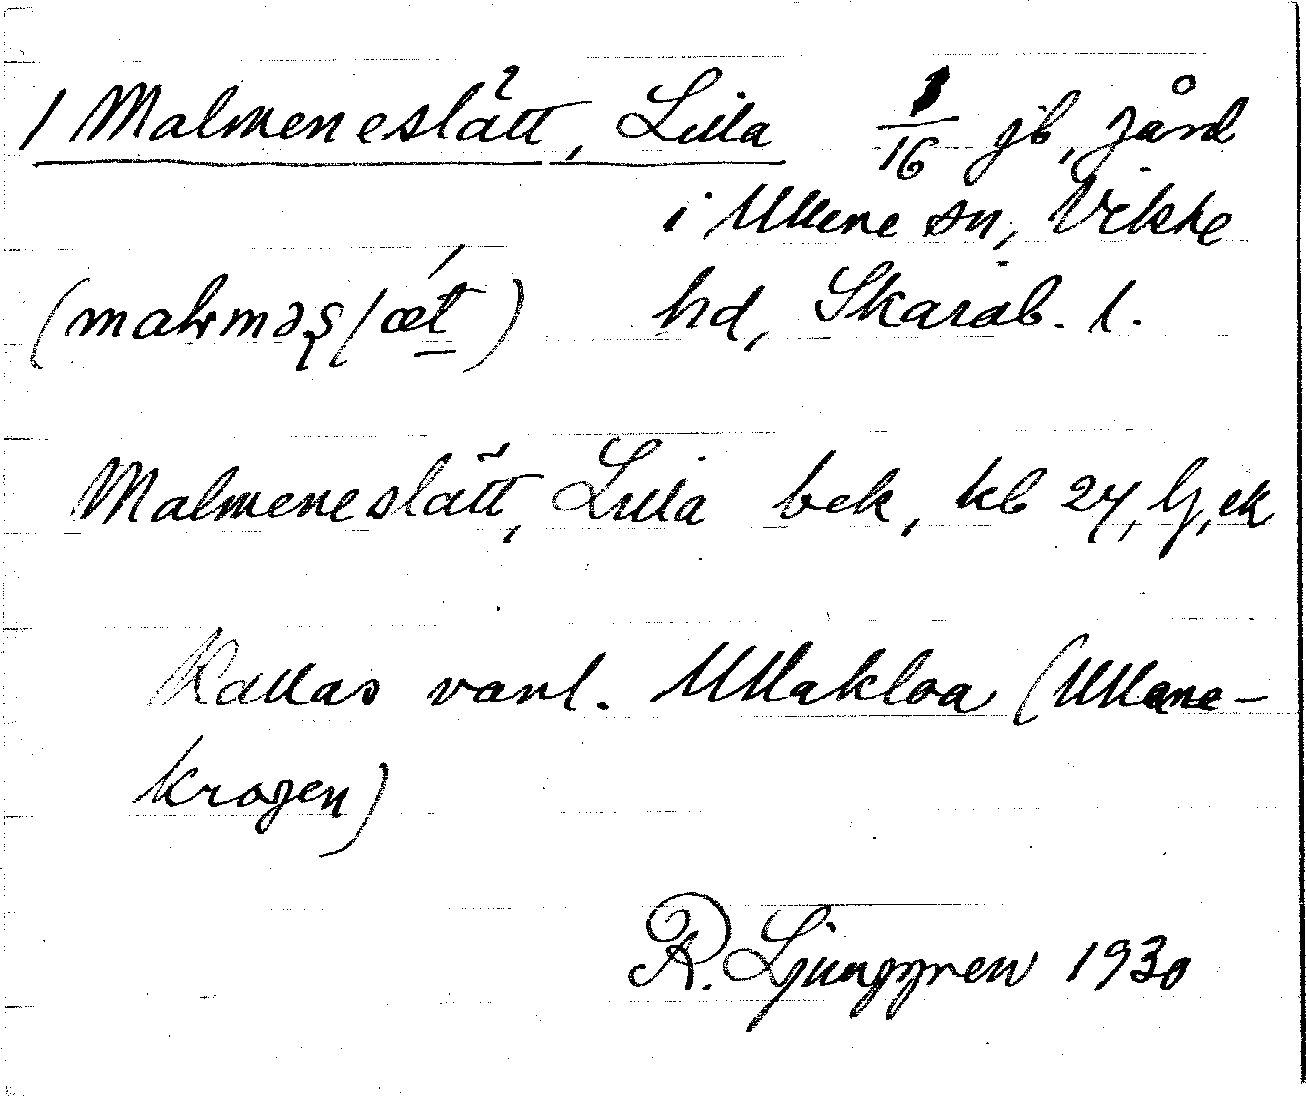 1 Malmeneslätt, Lilla 1/16 jb, gård
i Ullene sn, Vilske
(malməslæt) hd, Skarab. l.
Malmeneslätt, Lilla bek, kb 24, lj, ek
Kallas vanl. Ullakloa (Ullene-
krogen)
R. Ljunggren 1930